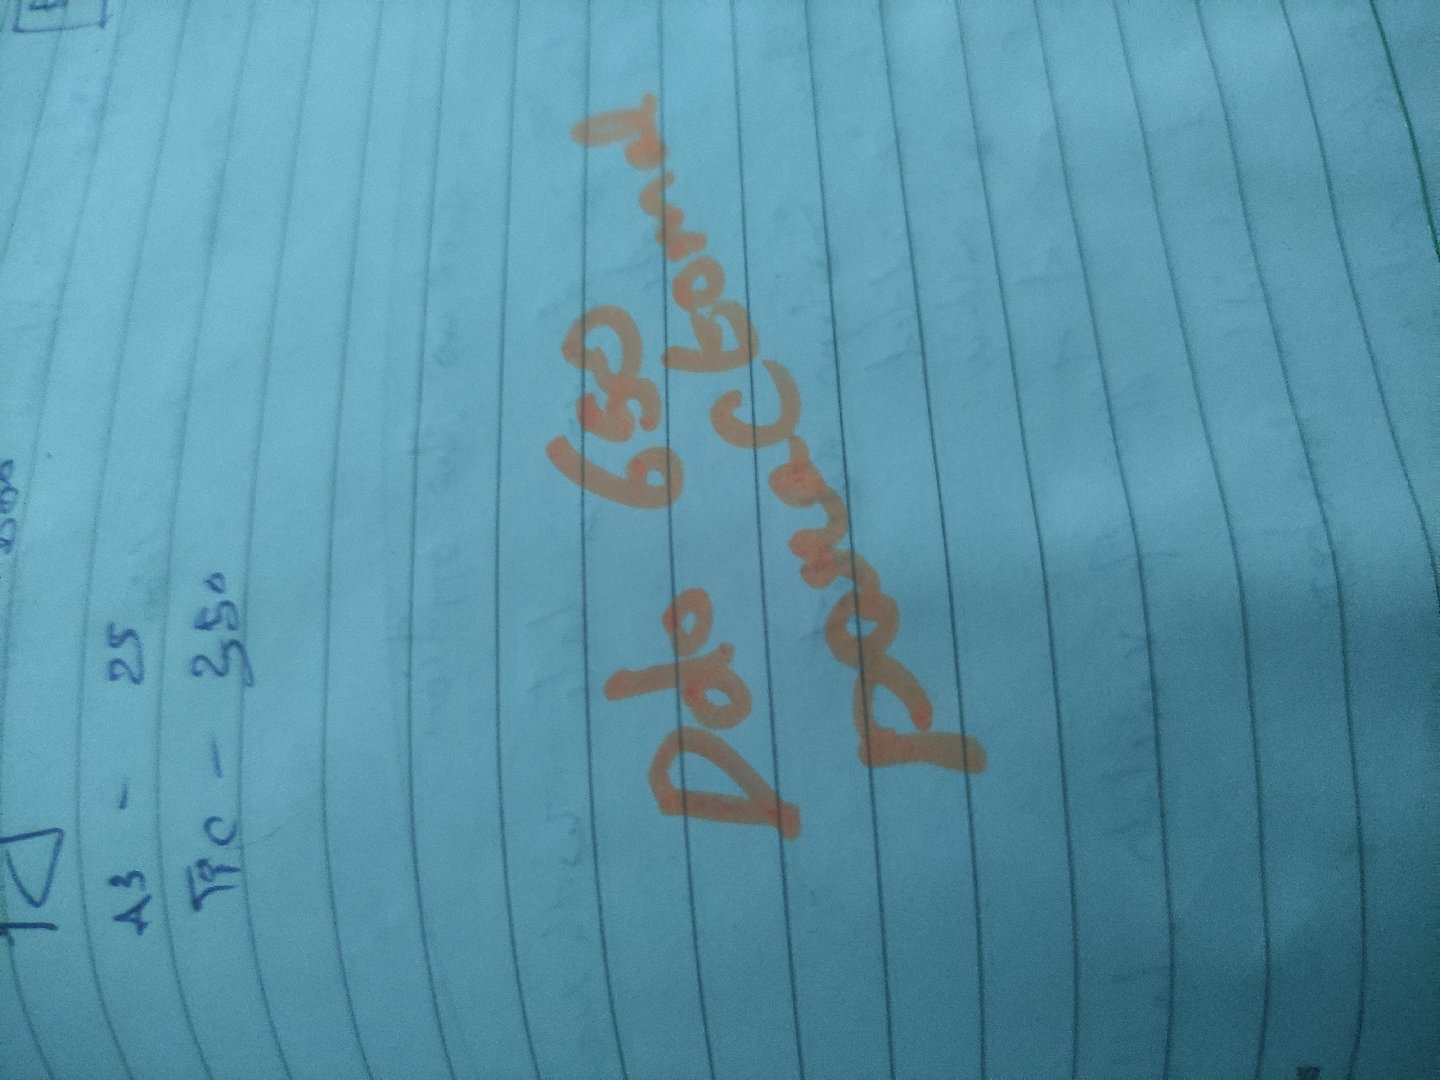 A3 - 25
Tic - 350
Ddo 650
paraCtomal